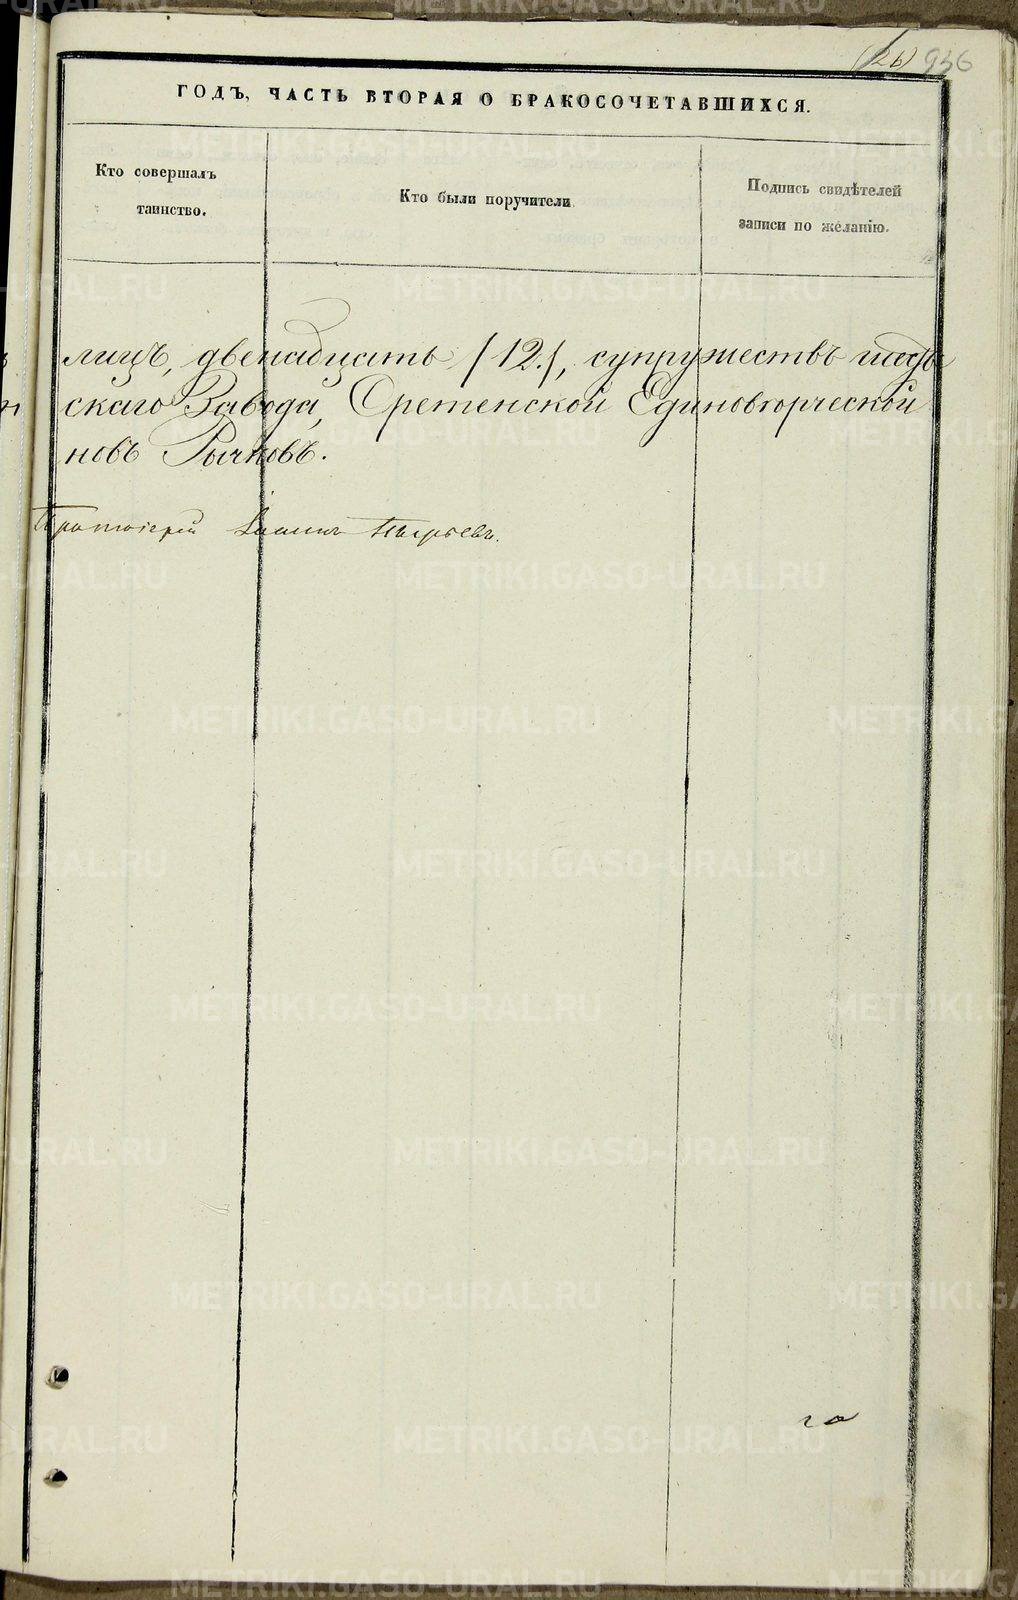 (126) 936
ГОДЪ, ЧАСТЬ ВТОРАЯ О БРАКОСОЧЕТАВШИХСЯ.
Кто совершалъ
таинство.
Кто были поручители.
Подпись свидѣтелей
записи по желанію.
лицъ, двенадцать /12./, супружествъ
скаго Завода, Сретенской Единоверческой
новъ Рычковъ.
Протоіерей Іоаннъ
METRIKI.GASO-URAL.RU